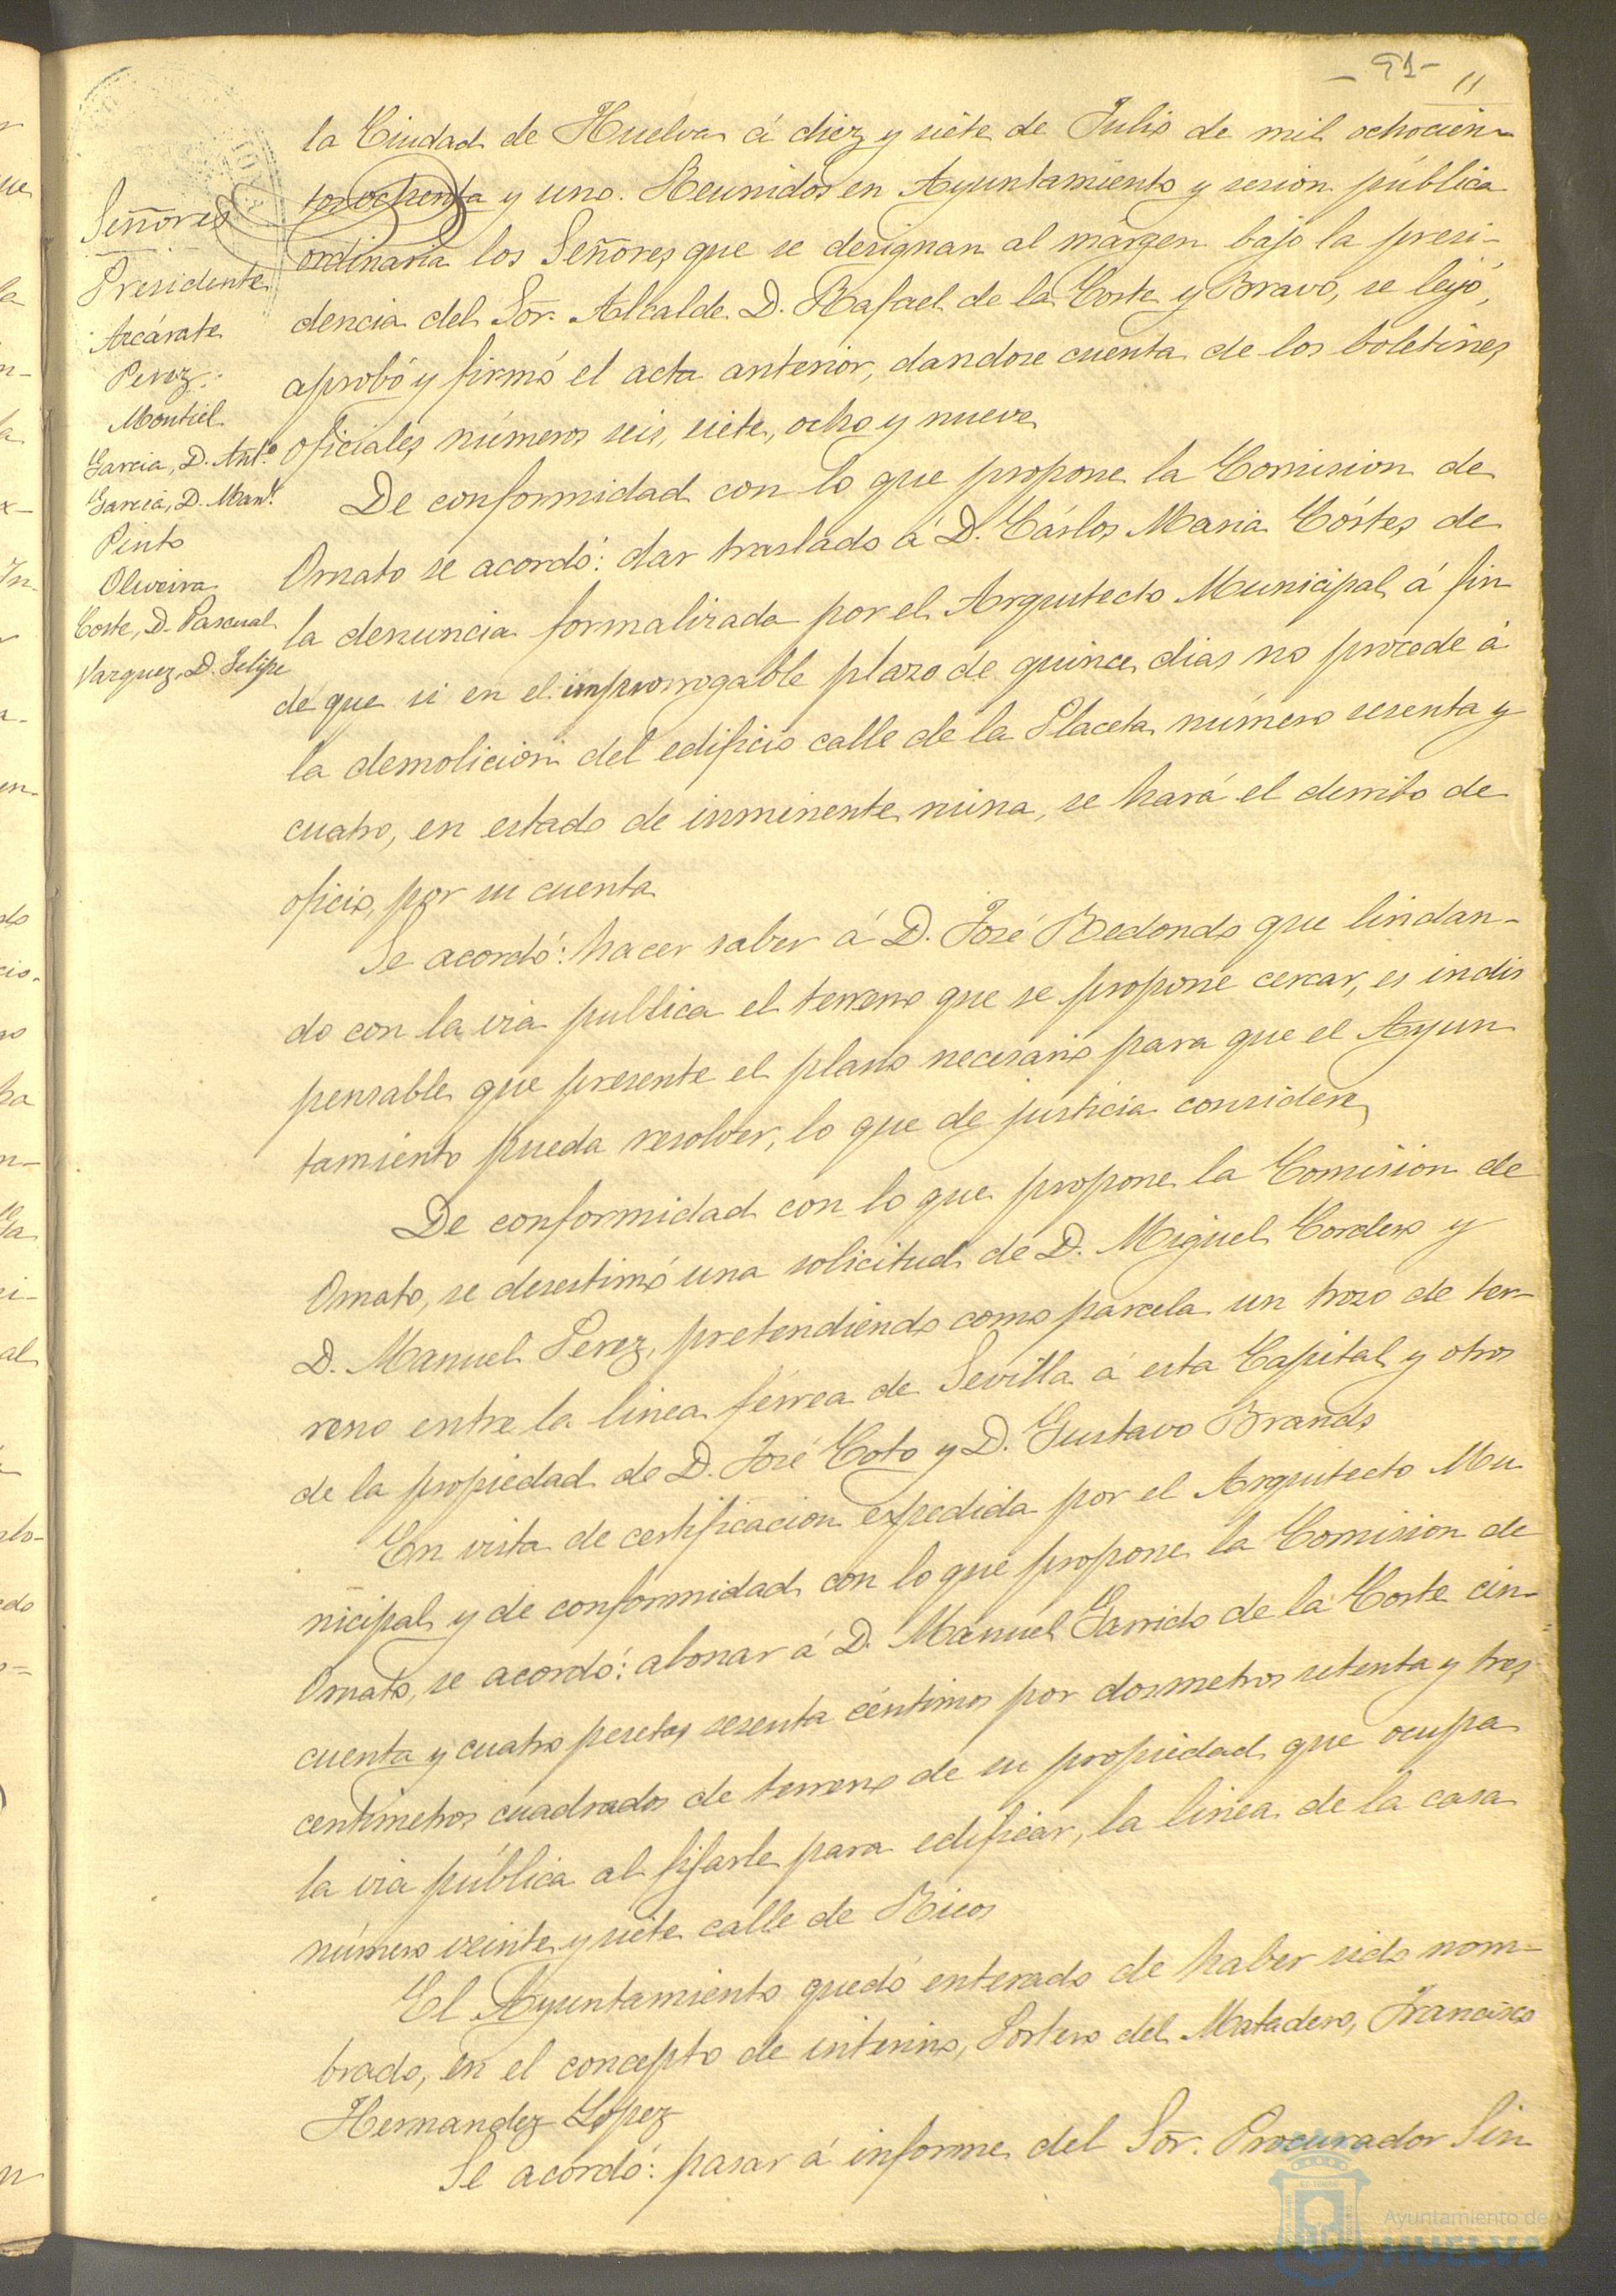 - 91 -
11
la Ciudad de Huelva á diez y siete de Julio de mil ochocien-
tos ochenta y uno. Reunidos en Ayuntamiento y sesion pública
ordinaria los Señores que se designan al margen bajo la presi-
dencia del Sor. Alcalde D. Rafael de la Corte y Bravo, se leyó,
aprobó y firmó el acta anterior, dandose cuenta de los boletines
oficiales números seis, siete, ocho y nueve
Señores
Presidente
Azcárate
Perez
Montiel
Garcia, D. Antº
Garcia, D. Manl.
Pinto
Oliveira
Corte, D. Pascual
Vazquez, D. Felipe
De conformidad con lo que propone la Comision de
Ornato se acordó: dar traslado á D. Cárlos Maria Córtes, de
la denuncia formalizada por el Arquitecto Municipal á fin
de que si en el improrrogable plazo de quince dias no procede á
la demolicion del edificio calle de la Placeta número sesenta y
cuatro, en estado de inminente ruina, se hará el derribo de
oficio, por su cuenta
Se acordó: hacer saber á D. José Redondo que lindan-
do con la via publica el terreno que se propone cercar, es indis
pensable que presente el plano necesario para que el Ayun
tamiento pueda resolver, lo que de justicia considere
De conformidad con lo que propone la Comision de
Ornato, se desestimó una solicitud de D. Miguel Cordero y
D. Manuel Perez, pretendiendo como parcela un trozo de ter-
reno entre la linea férrea de Sevilla á esta Capital y otros
de la propiedad de D. José Coto y D. Gustavo Brands
En vista de certificacion expedida por el Arquitecto Mu
nicipal y de conformidad con lo que propone la Comision de
Ornato, se acordó: abonar á D. Manuel Garrido de la Corte cin-
cuenta y cuatro pesetas sesenta céntimos por dos metros setenta y tres
centimetros cuadrados de terreno de su propiedad que ocupa
la via pública al fijarle para edificar, la linea de la casa
número veinte y siete calle de Ricos
El Ayuntamiento quedó enterado de haber sido nom-
brado, en el concepto de interino, Portero del Matadero, Francisco
Hernandez Lopez
Se acordó: pasar á informe del Sor. Procurador Sin
Ayuntamiento de
HUELVA